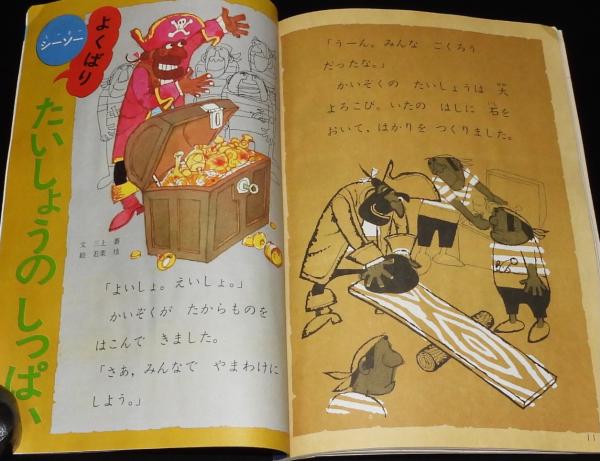 よくばり
シーソー
たいしょうの しっぱい
文 三上
絵 若菜
「よいしょ。えいしょ。」
かいぞくが たからものを
はこんで きました。
「さあ，みんなで やまわけに
しよう。」
「うーん。みんな ごくろう
だったな。」
かいぞくの たいしょうは 大
よろこび。いたの はしに 石を
おいて，はかりを つくりました。
11